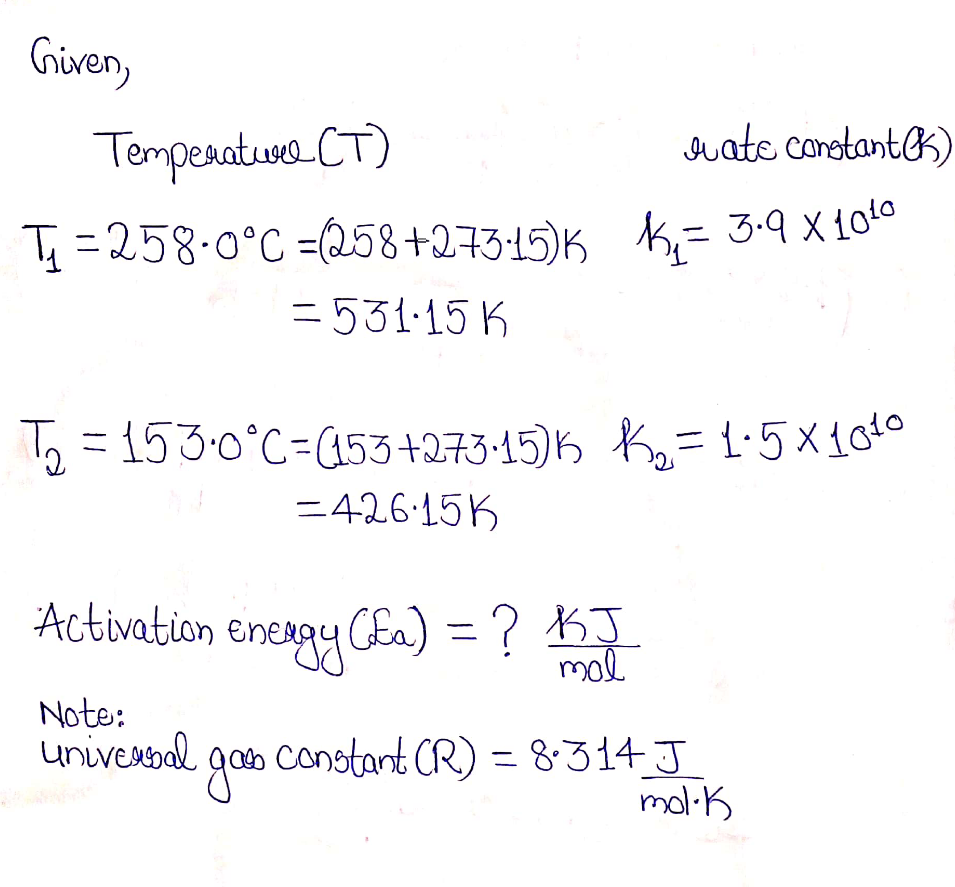 Given,
Temperature (T) rate constant (K)
T₁ = 258.0°C = (258+273.15)K K₁ = 3.9 X 10¹⁰
= 531.15 K
T₂ = 153.0°C = (153+273.15)K K₂ = 1.5 X 10¹⁰
= 426.15K
Activation energy (Ea) = ? KJ/mol
Note:
universal gas constant (R) = 8.314 J/mol.K